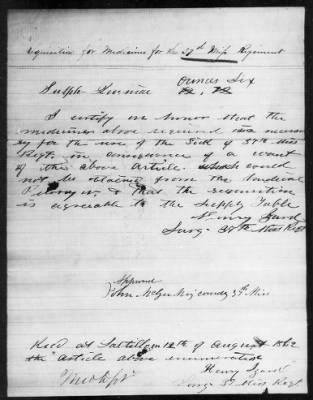 Requisition for Medicines for the 37th Miss Regiment
Sulph Quinine Ounces Six
I certify on honor that the
medicines above required are necessa
ry for the use of the Sick of 37th Miss
Regt. in consequence of a want
of the above article. which could
not be obtained from the Medical
& that the requisition
is agreeable to the Supply Table
Henry Gard
Surg 37th Miss Regt
Approved
John McGee Maj comdg 37th Miss
Recd at Saltillo 12th of August 1862
the article above enumerated
Henry Gard
Surg 37 Miss Regt